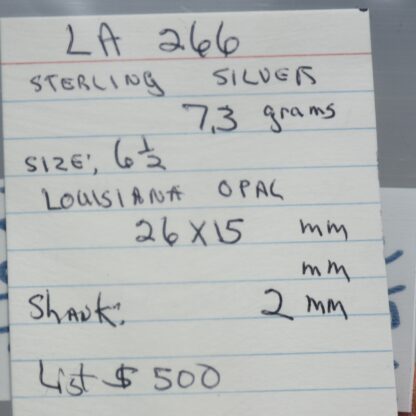 LA 266
STERLING SILVER
7.3 grams
SIZE: 6 1/2
LOUISIANA OPAL
26 X 15 mm
mm
Shank: 2 mm
List $ 500